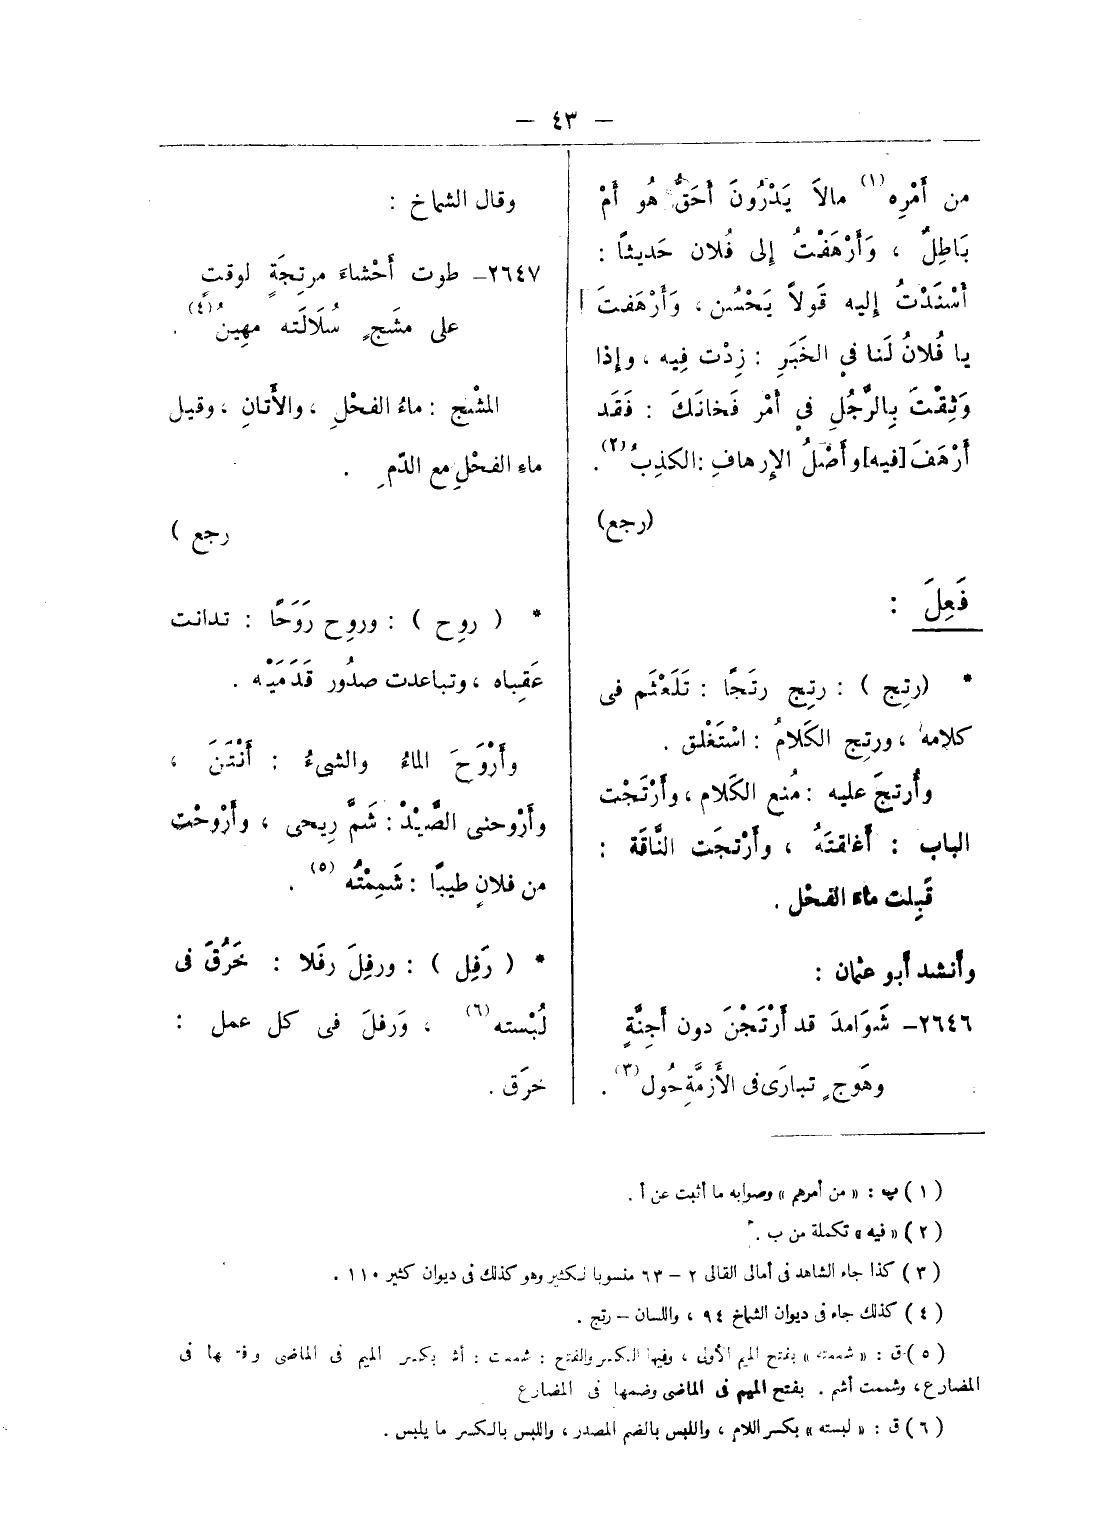 — ٤٣ —
من أَمْرِه(١) مالاَ يَدْرُونَ أَحَقٌّ هُو أَمْ
بَاطِلٌ ، وَأَرْهَفْتُ إلى فُلان حَديثاً :
أَسْنَدْتُ إليه قَولاً يَحْسُن ، وَأَرْهَفتَ
يا فُلانُ لَنا فى الخَبَرِ : زِدْت فِيه ، وإذا
وَثِقْتَ بِالرَّجُلِ فى أَمْر فَخانَكَ : فَقَد
أَرْهَفَ [فيه] وأَصْلُ الإِرهافِ : الكذِبُ(٢) .
(رجع)
فَعِلَ :
* (رتِج) : رتِج رتَجًا : تَلَعْثَم فى
كلامه ، ورتِج الكَلامُ : اسْتَغْلق .
وأُرتجَ عليه : مُنع الكَلام ، وأَرْتَجْت
الباب : أَغلقتَهُ ، وأَرْتجَت النَّاقَة :
قَبِلت ماء الفحْل .
وأنشد أبو عثمان :
٢٦٤٦– شَوَامدَ قد أَرْتَجْنَ دون أَجِنَّةٍ
وهَوجٍ تبارَى فى الأَزمَّةِ حُول(٣) .
وقال الشماخ :
٢٦٤٧– طوت أَحْشاءَ مرتِجَةٍ لوقتٍ
على مشَجٍ سُلَالَته مهِينُ(٤) .
المشْج : ماءُ الفحْلِ ، والأَتانِ ، وقيل
ماء الفحْلِ مع الدّمِ .
رجع )
* ( روِح ) : وروِح رَوَحًا : تدانت
عَقِباه ، وتباعدت صدُور قَدَمَيْه .
وأَرْوَحَ الماءُ والشىءُ : أَنْتَنَ ،
وأَرْوحنى الصَّيْدْ : شَمَّ رِيحى ، وأَرْوحْت
من فلانٍ طيبًا : شَمِمْتُه(٥) .
* ( رَفِل ) : ورفِلَ رفَلا : خَرُقَ فى
لُبْسته(٦) ، وَرفلَ فى كل عمل :
خرَق .
( ١ ) ب : « من أمرهم » وصوابه ما أثبت عن أ .
( ٢ ) « فيه » تكملة من ب .
( ٣ ) كذا جاء الشاهد فى أمالى القالى ٢ – ٦٣ منسوبا لكثير وهو كذلك فى ديوان كثير ١١٠ .
( ٤ ) كذلك جاء فى ديوان الشماخ ٩٤ ، واللسان – رتج .
( ٥ ) ق : « شممته » بفتح الميم الأولى ، وفيها الكسر والفتح : شممت : أشم بكسر الميم فى الماضى وفتحها فى
المضارع ، وشممت أشم . بفتح الميم فى الماضى وضمها فى المضارع
( ٦ ) ق : « لبسته » بكسر اللام ، واللبس بالضم المصدر ، واللبس بالكسر ما يلبس .